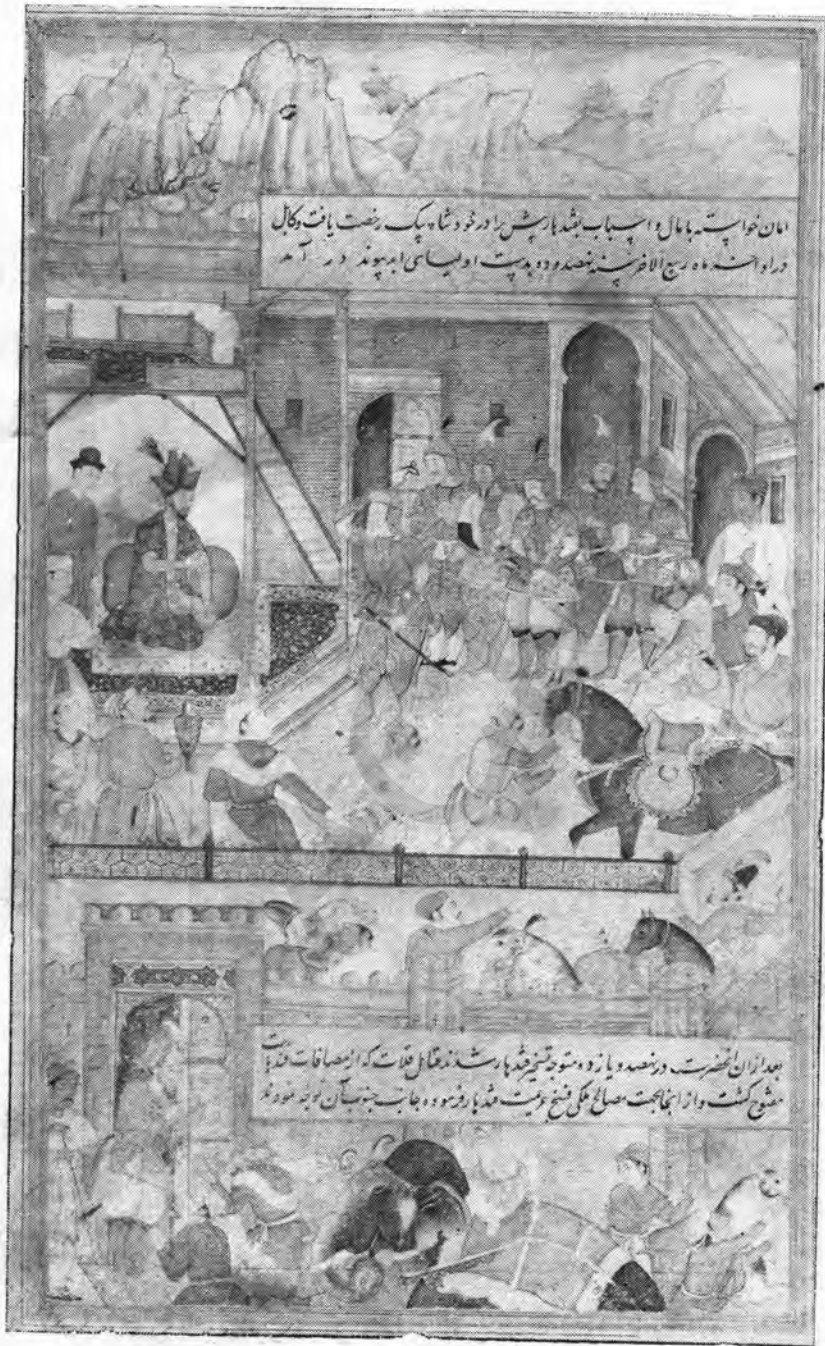 امان خواسته با مال و اسباب بقندهار پیش برادر خود شاه بیک رخصت یافت و کابل
در اواخر ماه ربیع الاخر سنه نهصد و ده بدست اولیای ابد پیوند در آمد
بعد ازان انحضرت در نهصد و یازده متوجه تسخیر قندهار شدند قلات که از مضافات قندهارست
مفتوح کشت و از انجا بجهت مصالح ملکی فسخ عزیمت قندهار فرموده جانب جنوب آن توجه نمودند